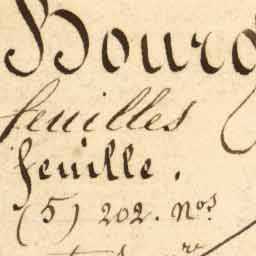 Bourg
feuilles
feuille.
(5) 202. Nos